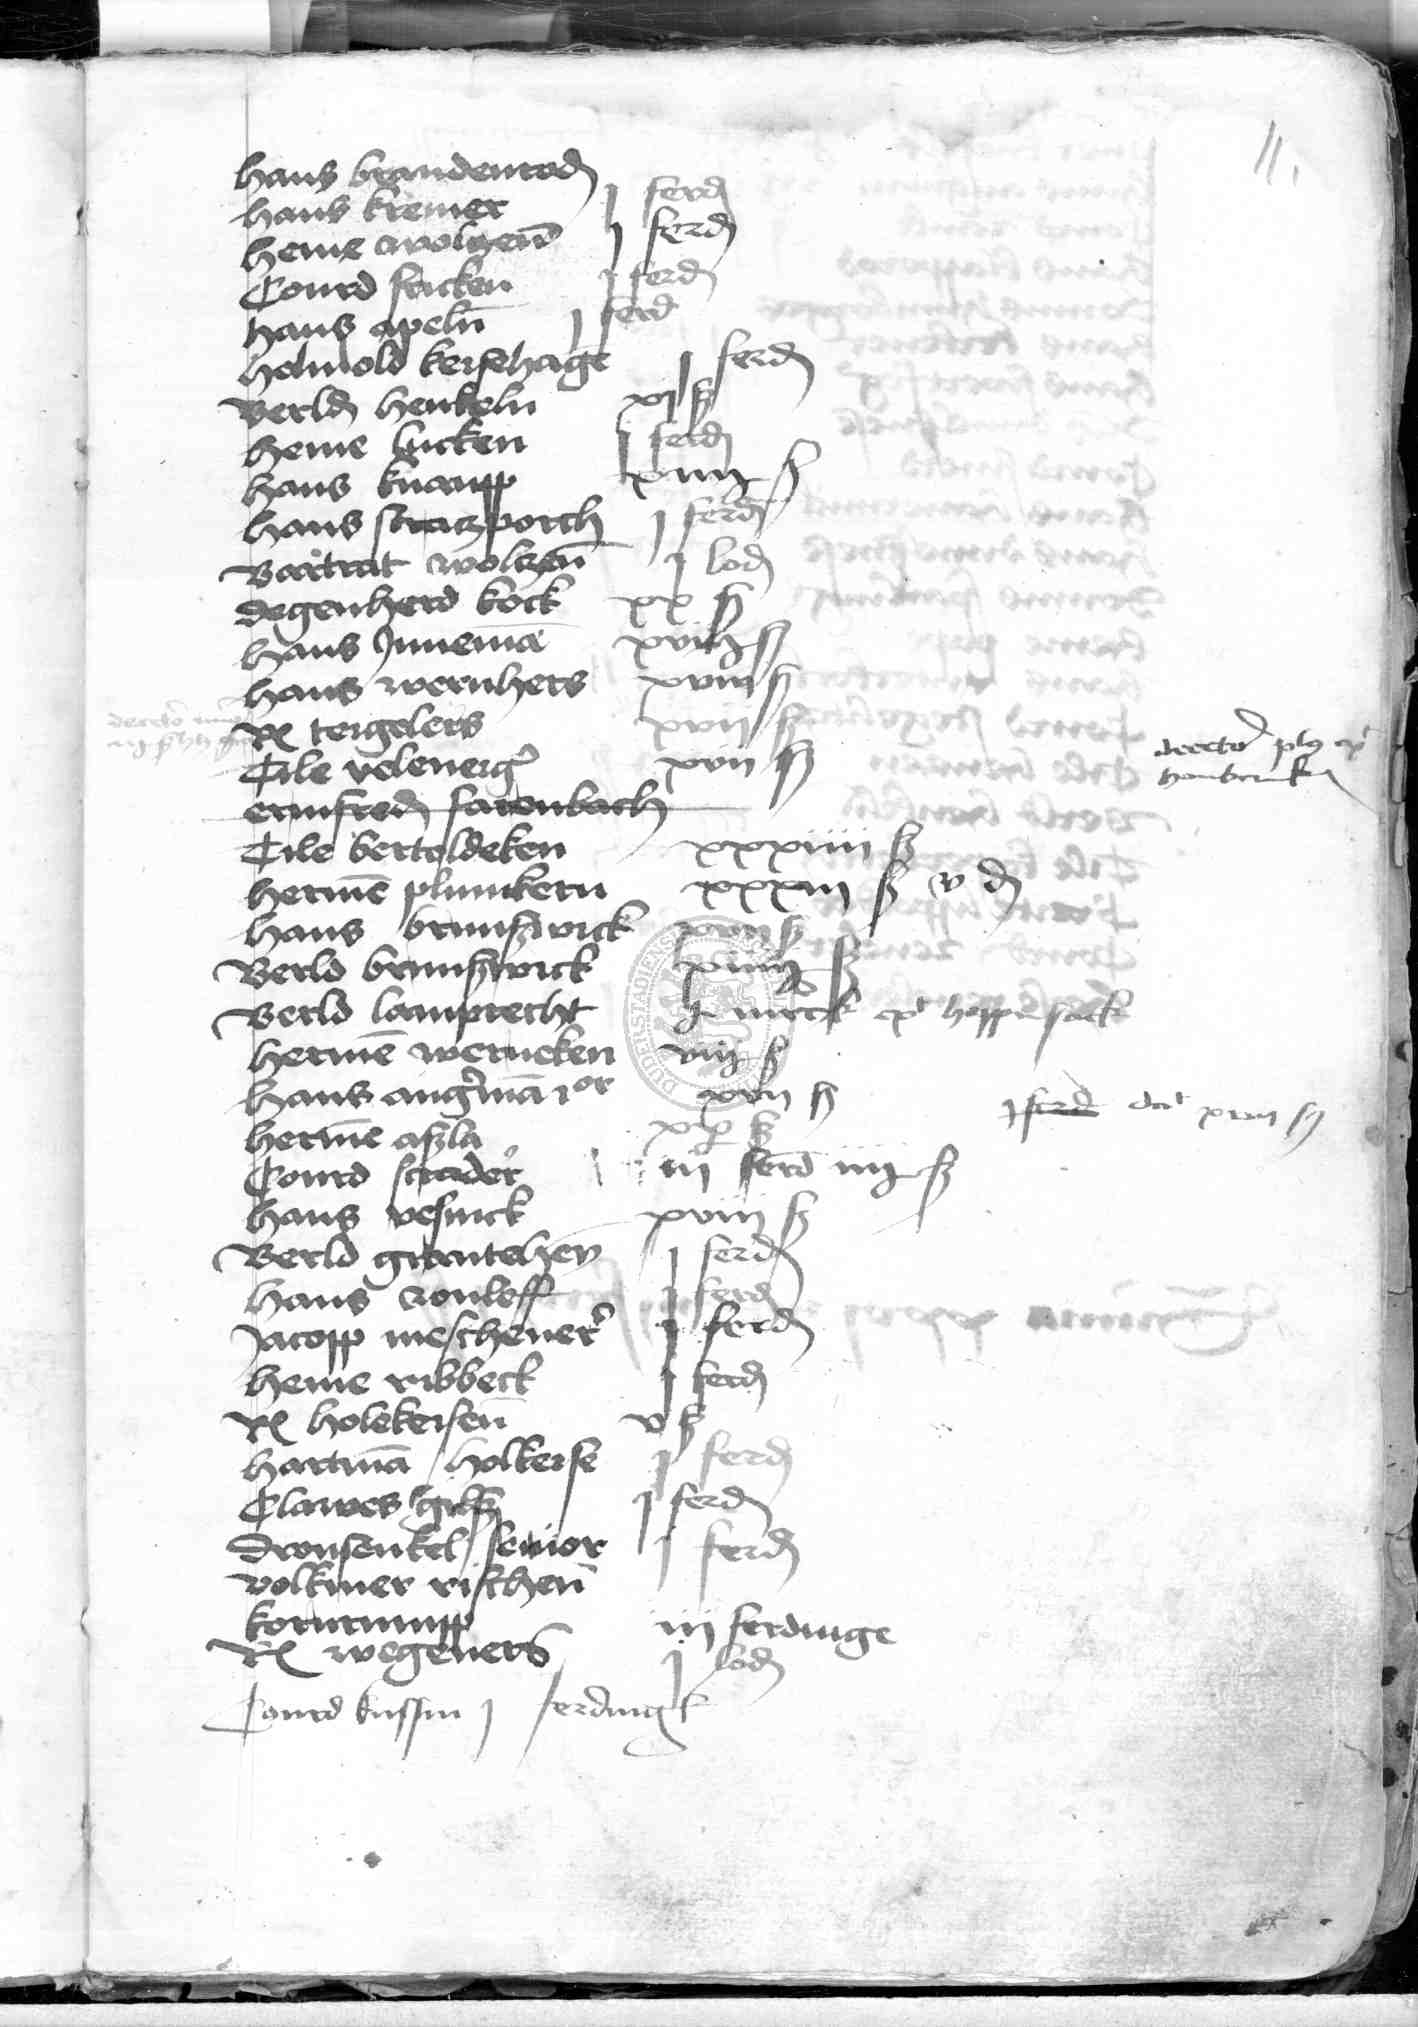 11.
Hans brandenrod
Hans kremer j ferd
Heine woltzen j ferd
Conrd fricken j ferd
Hans apeln j ferd
Helmold kersehage j ferd
Berld henkeln xj ß
Heine lucken j ferd
Hans knaupp xiiij ß
Hans scatzporch j ferd
Bartrat woltzen j lod
Degenherd kock xx ß
Hans Junema xviij ß
Hans wernhers xviij ß
Rel tergelers xvij ß
Tile xvij ß
ermfred farenbach
Tile bertoldeken xxxiiii ß
Herme plumkern xxxiij ß v d
Hans brunswick xvij ß
Berld brunswick xiiij ß
Berld lamprecht j marck hoppesack
Herme werneken viij ß
Hans angerma xvij ß
j ferd xviij ß
Herme asla xx ß
Conrd scrader iij ferd iiij ß
Hans vesinck xviij ß
Berld grantehen j ferd
Hans rouleff j ferd
Jacopp meschener j ferd
Heine ribbeck j ferd
Rel holekersen v ß
Hartma holkerse j ferd
Clawes j ferd
Dronsenkel senior j ferd
Volkmer rischen
kornrumpp iij ferdinge
Rel wegeners j lod
Conrd kussin j ferding
DUDERSTADIENS